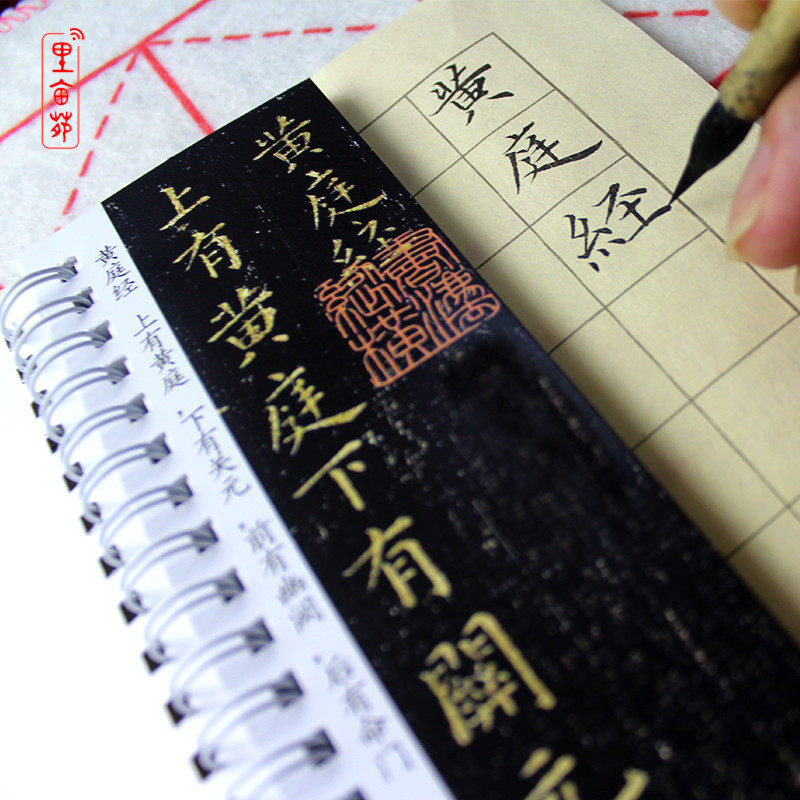 黄庭経
黄庭経
上有黄庭下有關元
黄庭经 上有黄庭，下有关元，前有幽阙，后有命门